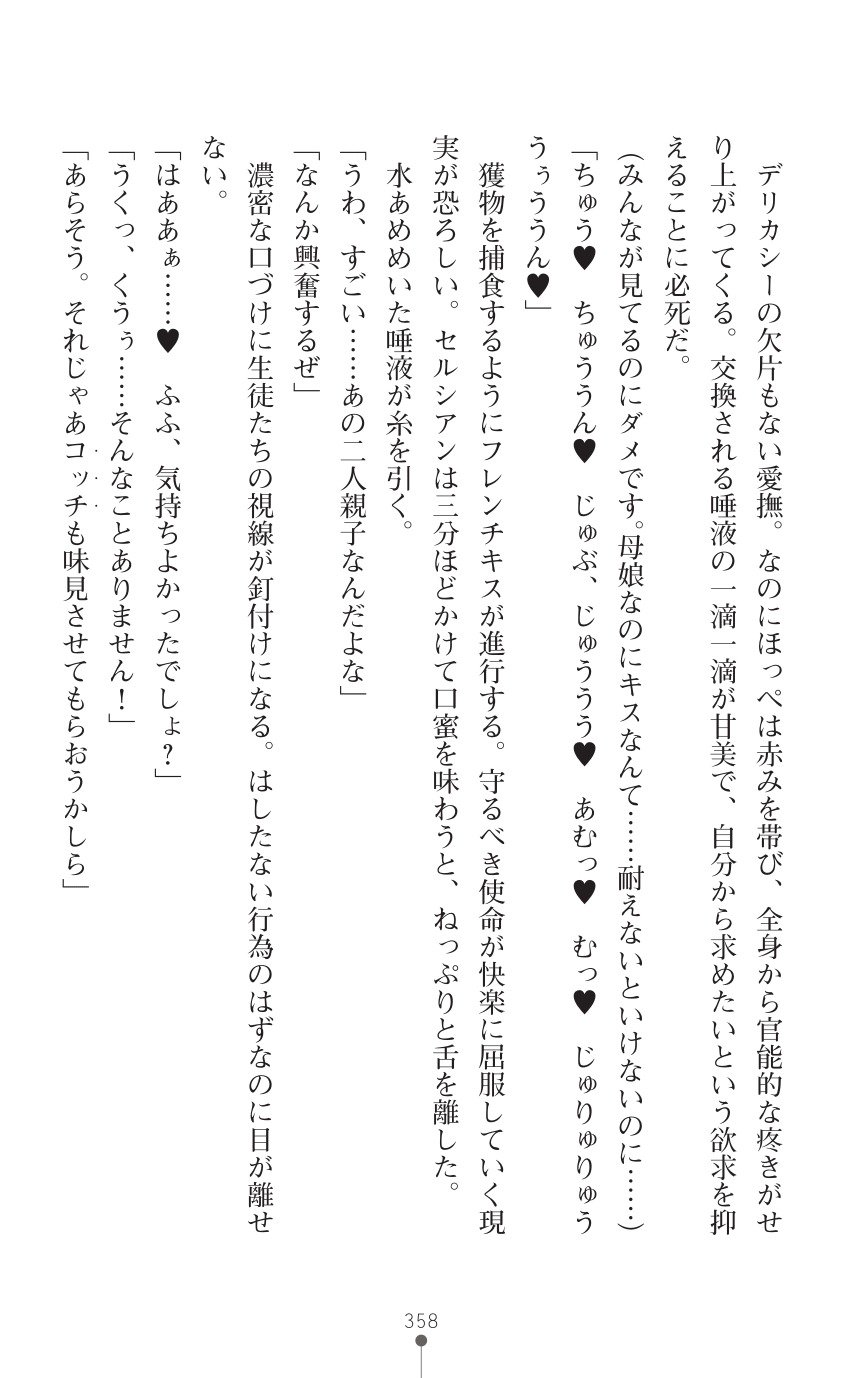 デリカシーの欠片もない愛撫。なのにほっぺは赤みを帯び、全身から官能的な疼きがせ
り上がってくる。交換される唾液の一滴一滴が甘美で、自分から求めたいという欲求を抑
えることに必死だ。
(みんなが見てるのにダメです。母娘なのにキスなんて……耐えないといけないのに……)
「ちゅう♥　ちゅううん♥　じゅぶ、じゅううう♥　あむっ♥　むっ♥　じゅりゅりゅう
うぅううん♥」
獲物を捕食するようにフレンチキスが進行する。守るべき使命が快楽に屈服していく現
実が恐ろしい。セルシアンは三分ほどかけて口蜜を味わうと、ねっぷりと舌を離した。
水あめめいた唾液が糸を引く。
「うわ、すごい……あの二人親子なんだよな」
「なんか興奮するぜ」
濃密な口づけに生徒たちの視線が釘付けになる。はしたない行為のはずなのに目が離せ
ない。
「はああぁ……♥　ふふ、気持ちよかったでしょ？」
「うくっ、くうぅ……そんなことありません！」
「あらそう。それじゃあコッチも味見させてもらおうかしら」
358